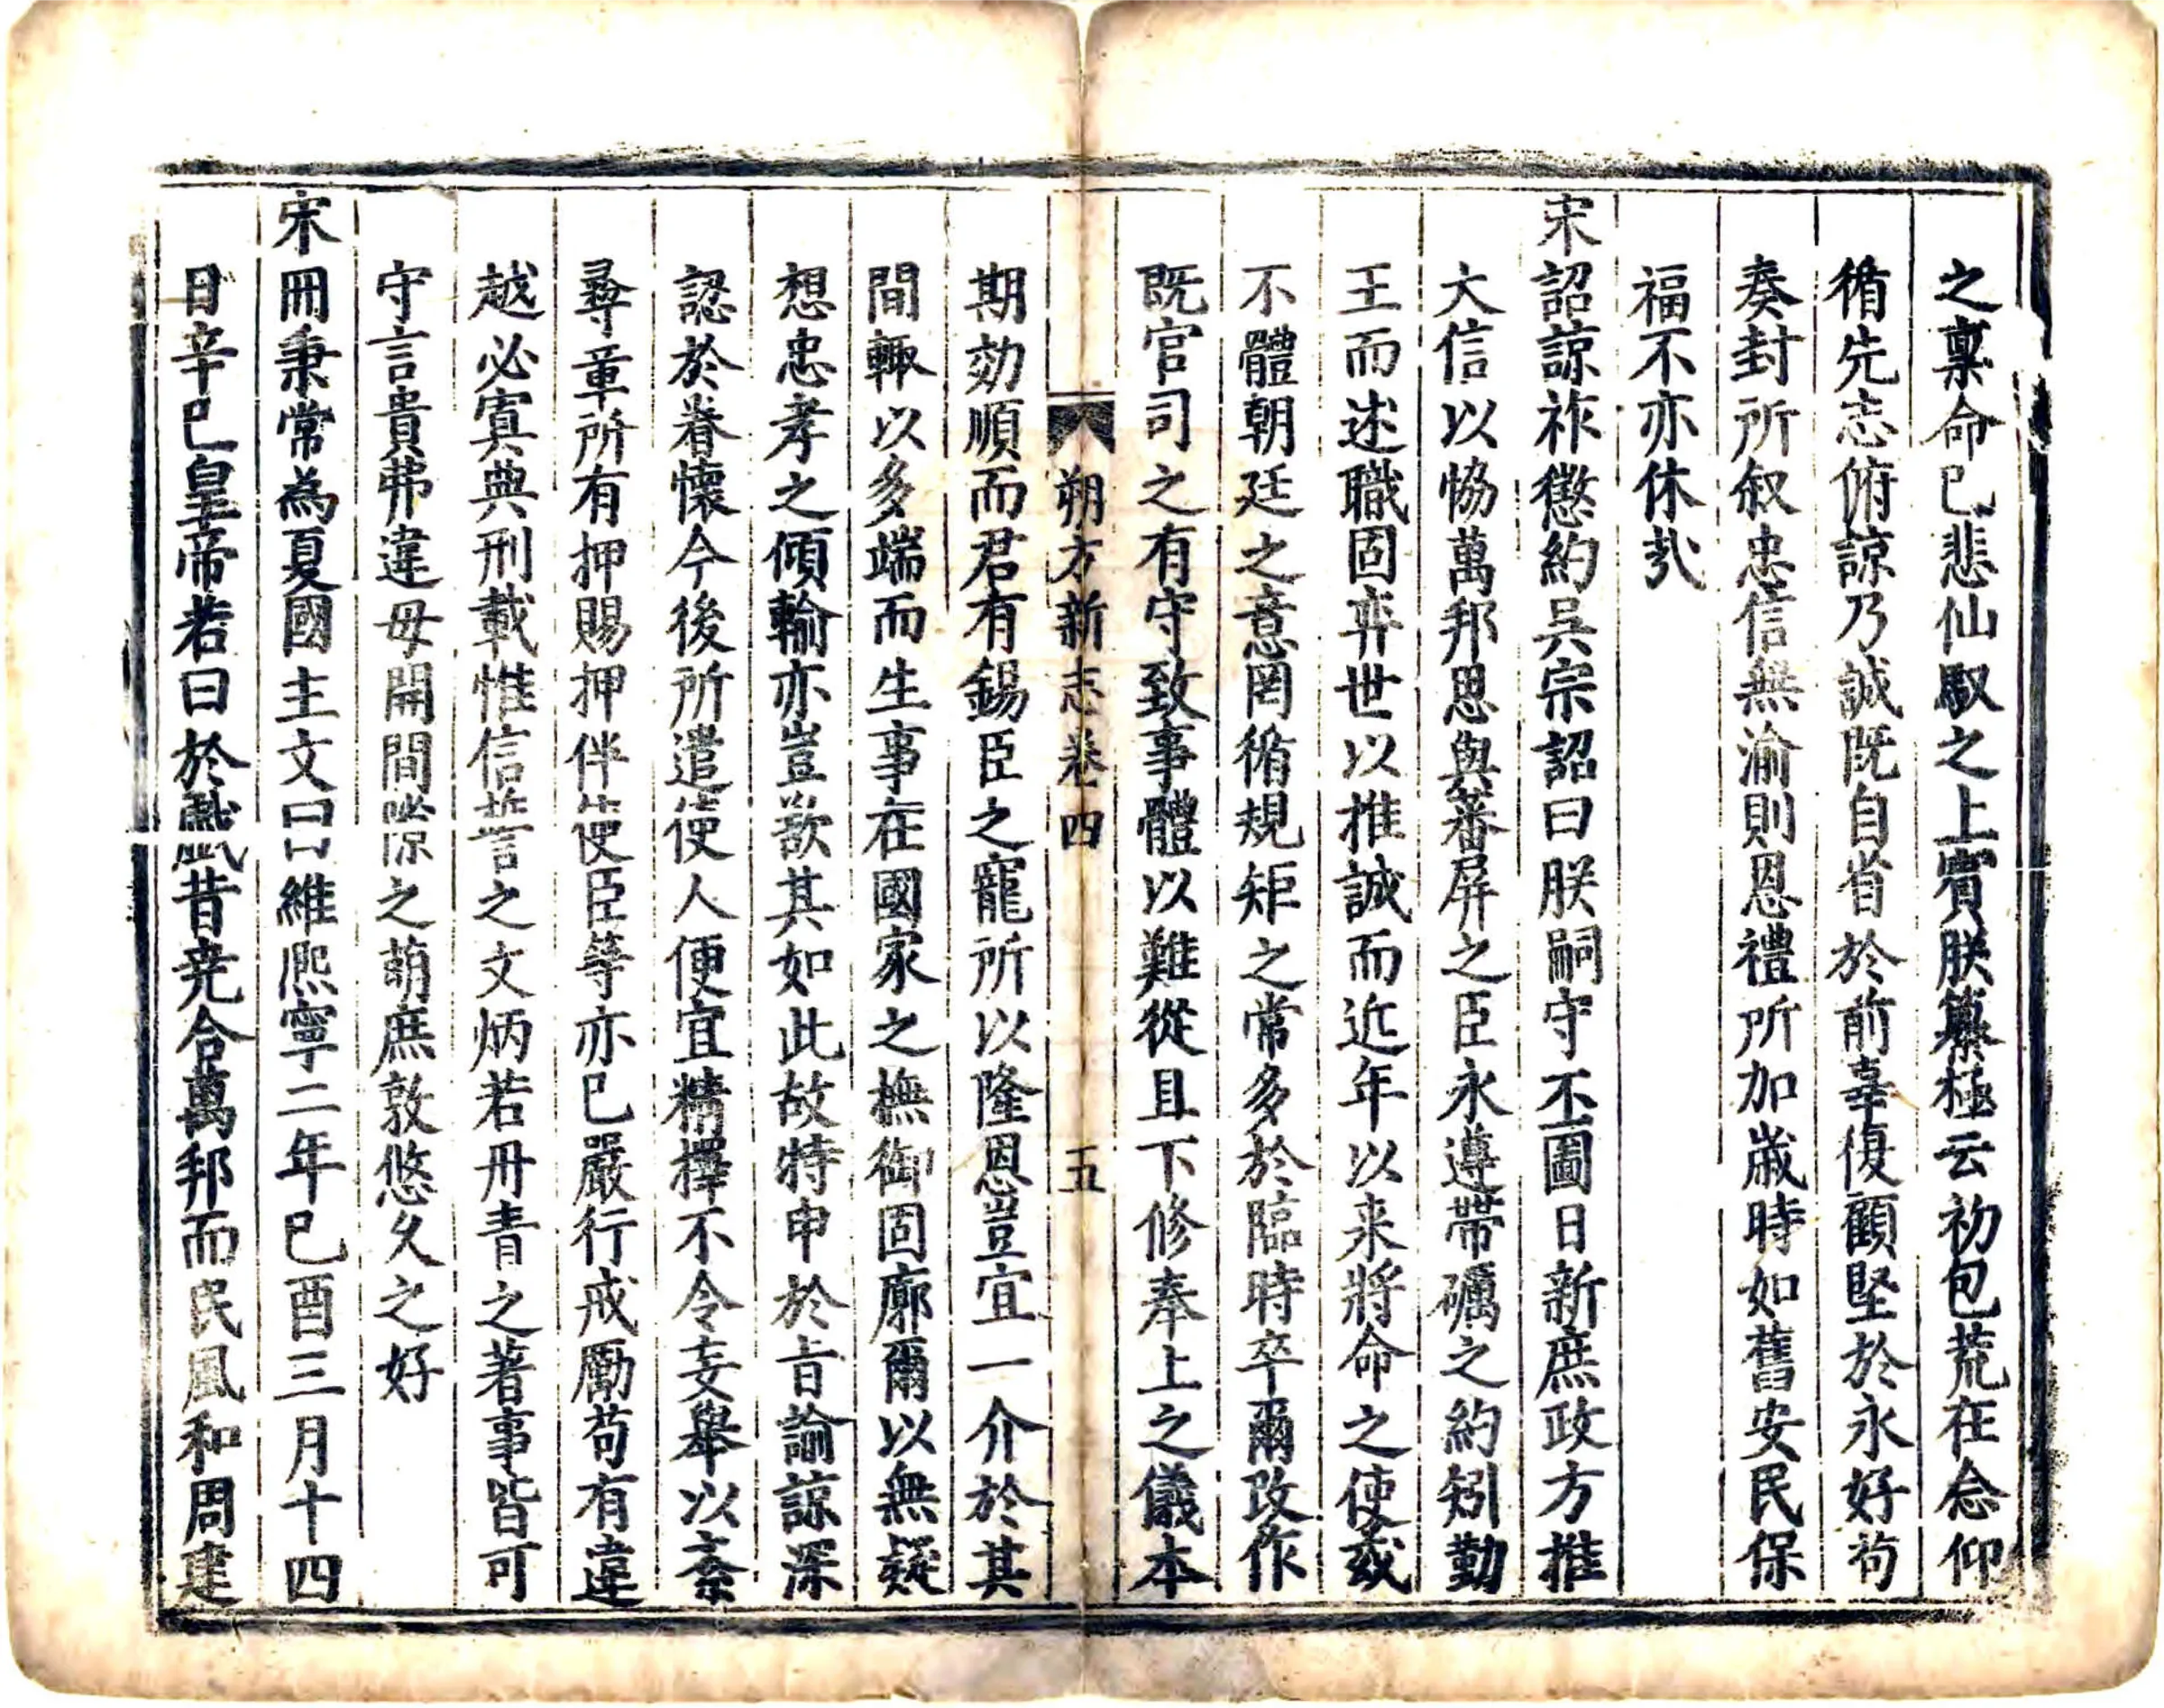 之稟命已悲仙馭之上賓朕纂極云初包荒在念仰
循先志俯諒乃誠既自省於前辜復顧堅於永好茍
奏封所叙忠信無渝則恩禮所加歲時如舊安民保
福不亦休㢤
宋詔諒祚懲約吳宗詔曰朕嗣守丕圖日新庶政方推
大信以恊萬邦思與蕃屏之臣永遵帶礪之約矧勤
王而述職固弈世以推誠而近年以来將命之使或
不體朝廷之意罔循規矩之常多於臨時卒爾改作
既官司之有守致事體以難從且下修奉上之儀本
朔方新志卷四 五
期効順而君有錫臣之寵所以隆恩豈宜一介於其
間輙以多端而生事在國家之撫御固廓爾以無疑
想忠孝之傾輸亦豈欲其如此故特申於旨諭諒深
認於眷懷今後所遣使人便宜精擇不令妄舉以紊
彞章所有押賜押伴使臣等亦已嚴行戒勵苟有違
越必寘典刑載惟信誓之文炳若丹青之著事皆可
守言貴弗違毋開間隙之萌庶敦悠久之好
宋冊秉常為夏國主文曰維熈寧二年已酉三月十四
日辛巳皇帝若曰於戯昔尭合萬邦而民風和周建